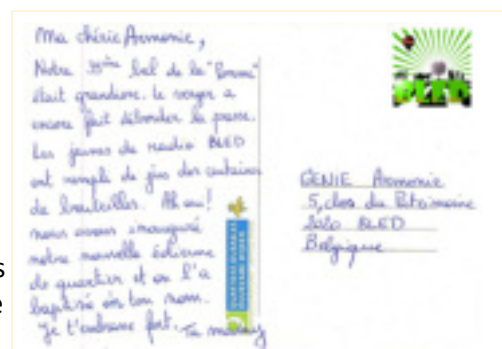 Ma chérie Armonie,
Notre bal de la "Pomme"
était grandiose. Le verger a
encore fait déborder la presse.
Les jeunes de radio BLED
ont rempli de jus des centaines
de bouteilles. Ah oui!
nous avons inauguré
notre nouvelle éolienne
de quartier et on l'a
baptisé en ton nom.
Je t'embrasse fort. Ta
BLED
GENIE Armonie
5, clos du Patrimoine
2020 BLED
Belgique
s
e